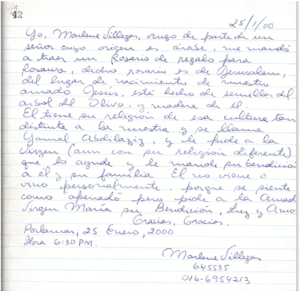 42
25/1/00
Yo, Marlene Villegas, vengo de parte de un
señor cuyo origen es árabe, me mandó
a traer un Rosario de regalo para
Rosaura, dicho rosario es de Jerusalem,
del lugar de nacimiento de nuestro
amado Jesús, está hecho de semillas del
arbol del Olivo, y madera de él
El tiene su religión de esa cultura tan
distinta a la nuestra y se llama
Yamal y le pide a la
Virgen (aun con su religión diferente)
que lo ayude y le mande su bendición
a él y su familia El no viene o
vino personalmente porque se siente
como apenado pero pide a la Amada
Virgen María su Bendición, Luz y Amor
Gracias, Gracias.
Porlamar, 25 Enero, 2000
Hora 6:30 P.M.
Marlene Villegas
645535
016-6954213